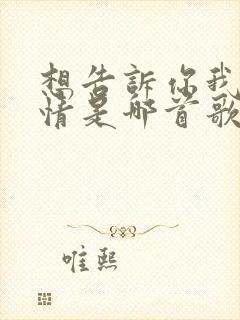 想告訴你我
情是哪首歌
唯熙